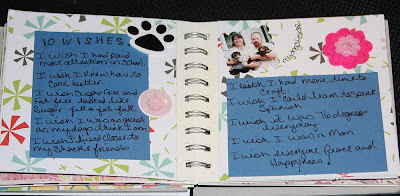 10 WISHES
I wish I had paid
more attention in School.
I wish I knew how to
Cook better.
I wish Sugar free and
Fat-free tasted like
Sugar-full & fat-full
I wish I was as great
as my dogs think I am
I wish I lived closer to
my Shackie friends
I wish I had more time to
Craft
I wish I could learn to speak
Spanish
I wish it was 76 degrees
everyday
I wish I was a Mom
I wish everyone Peace and
Happyness!